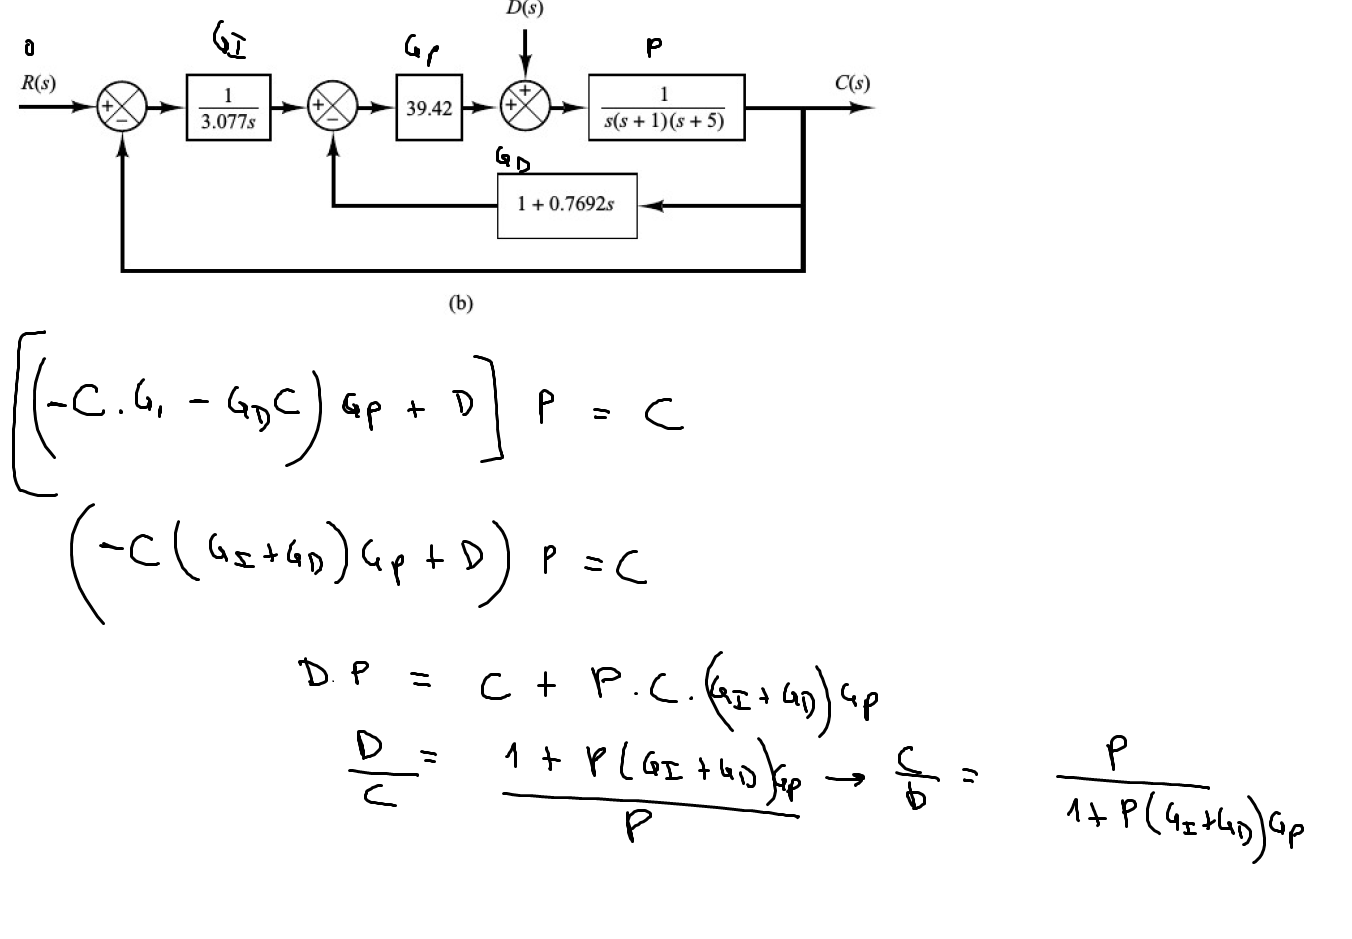 D(s)
0 G_I G_P P
R(s) + − 1/3.077s + − 39.42 + + 1/s(s + 1)(s + 5) C(s)
G_D
1 + 0.7692s
(b)
[(-C.G_I - G_D C) G_P + D] P = C
(-C(G_I+G_D) G_P + D) P = C
D.P = C + P.C.(G_I+G_D) G_P
D/C = 1 + P(G_I+G_D)G_P / P → C/D = P / 1+P(G_I+G_D)G_P